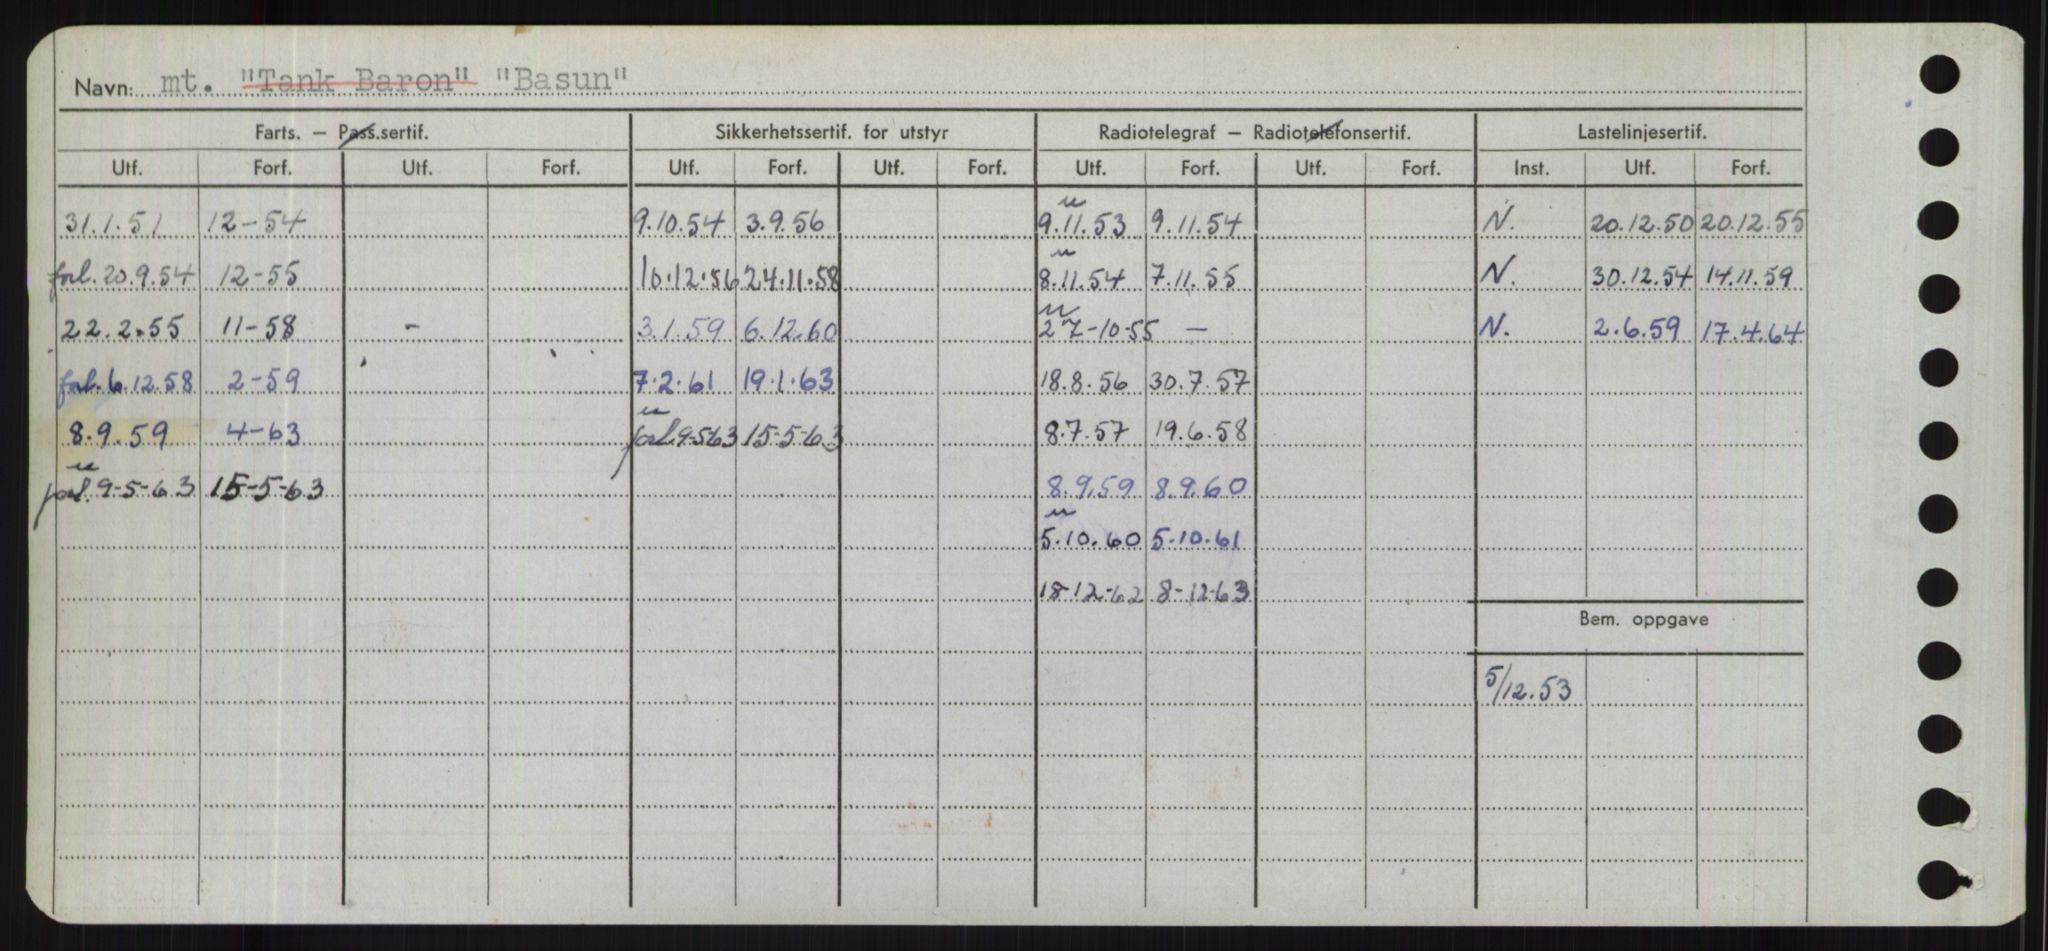 Navn: mt. "Tank Baron" "Basun"
Farts. – Pass.sertif. Sikkerhetssertif. for utstyr Radiotelegraf – Radiotelefonsertif. Lastelinjesertif.
Utf. Forf. Utf. Forf. Utf. Forf. Utf. Forf. Utf. Forf. Utf. Forf. Inst. Utf. Forf.
31.1.51 12-54 9.10.54 3.9.56 9.11.53 9.11.54 N. 20.12.50 20.12.55
forl. 20.9.54 12-55 10.12.56 24.11.58 8.11.54 7.11.55 N. 30.12.54 14.11.59
22.2.55 11-58 - 3.1.59 6.12.60 27-10-55 - N. 2.6.59 17.4.64
forl. 6.12.58 2-59 7.2.61 19.1.63 18.8.56 30.7.57
8.9.59 4-63 forl. 9-5-63 15-5-63 8.7.57 19.6.58
forl. 9-5-63 15-5-63 8.9.59 8.9.60
5.10.60 5.10.61
18-12-62 8-12-63
Bem. oppgave
5/12.53